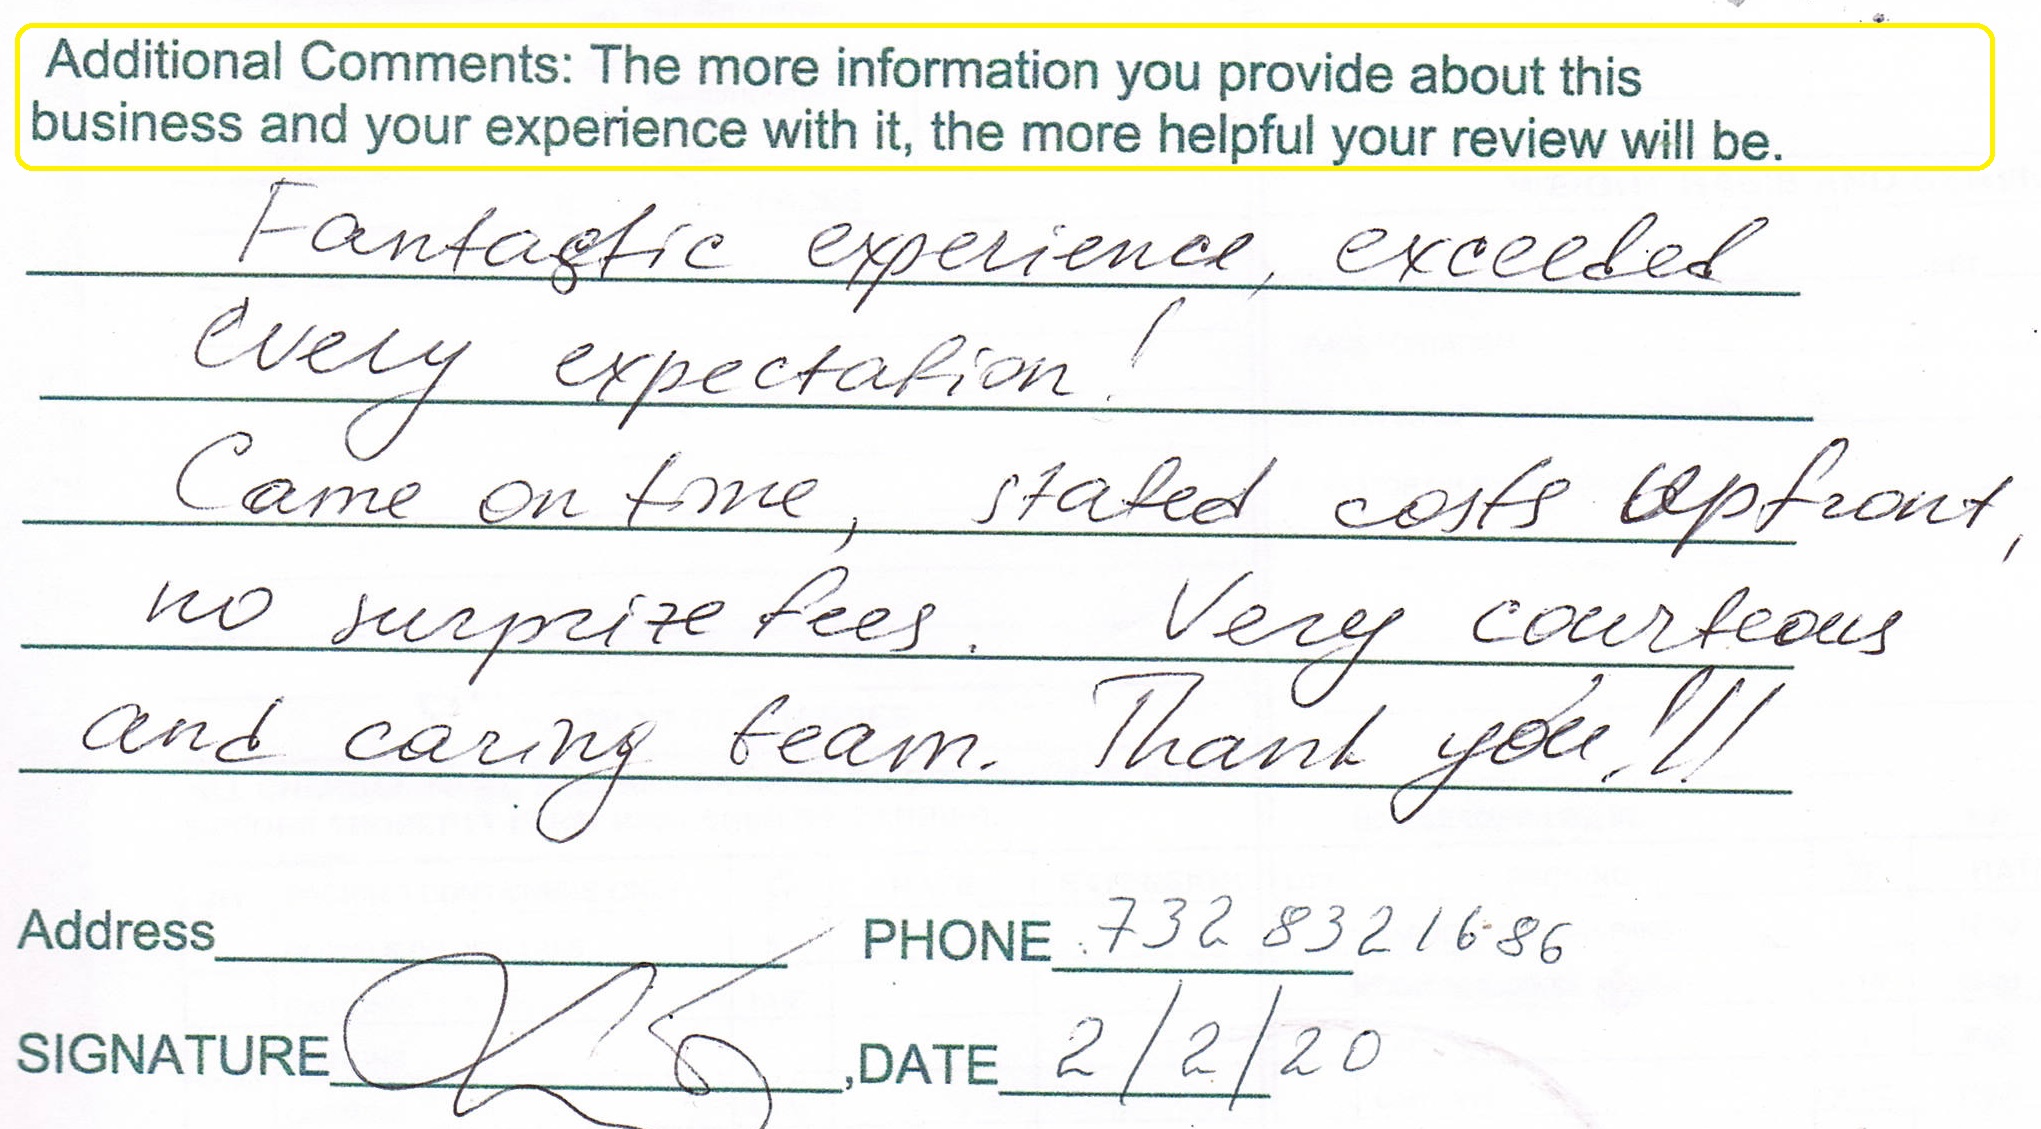 Additional Comments: The more information you provide about this
business and your experience with it, the more helpful your review will be.
Fantastic experience, exceeded
every expectation!
Came on time, stated costs upfront,
no surprize fees. Very courteous
and caring team. Thank you!!!
Address PHONE 732 832 1686
SIGNATURE ,DATE 2/2/20